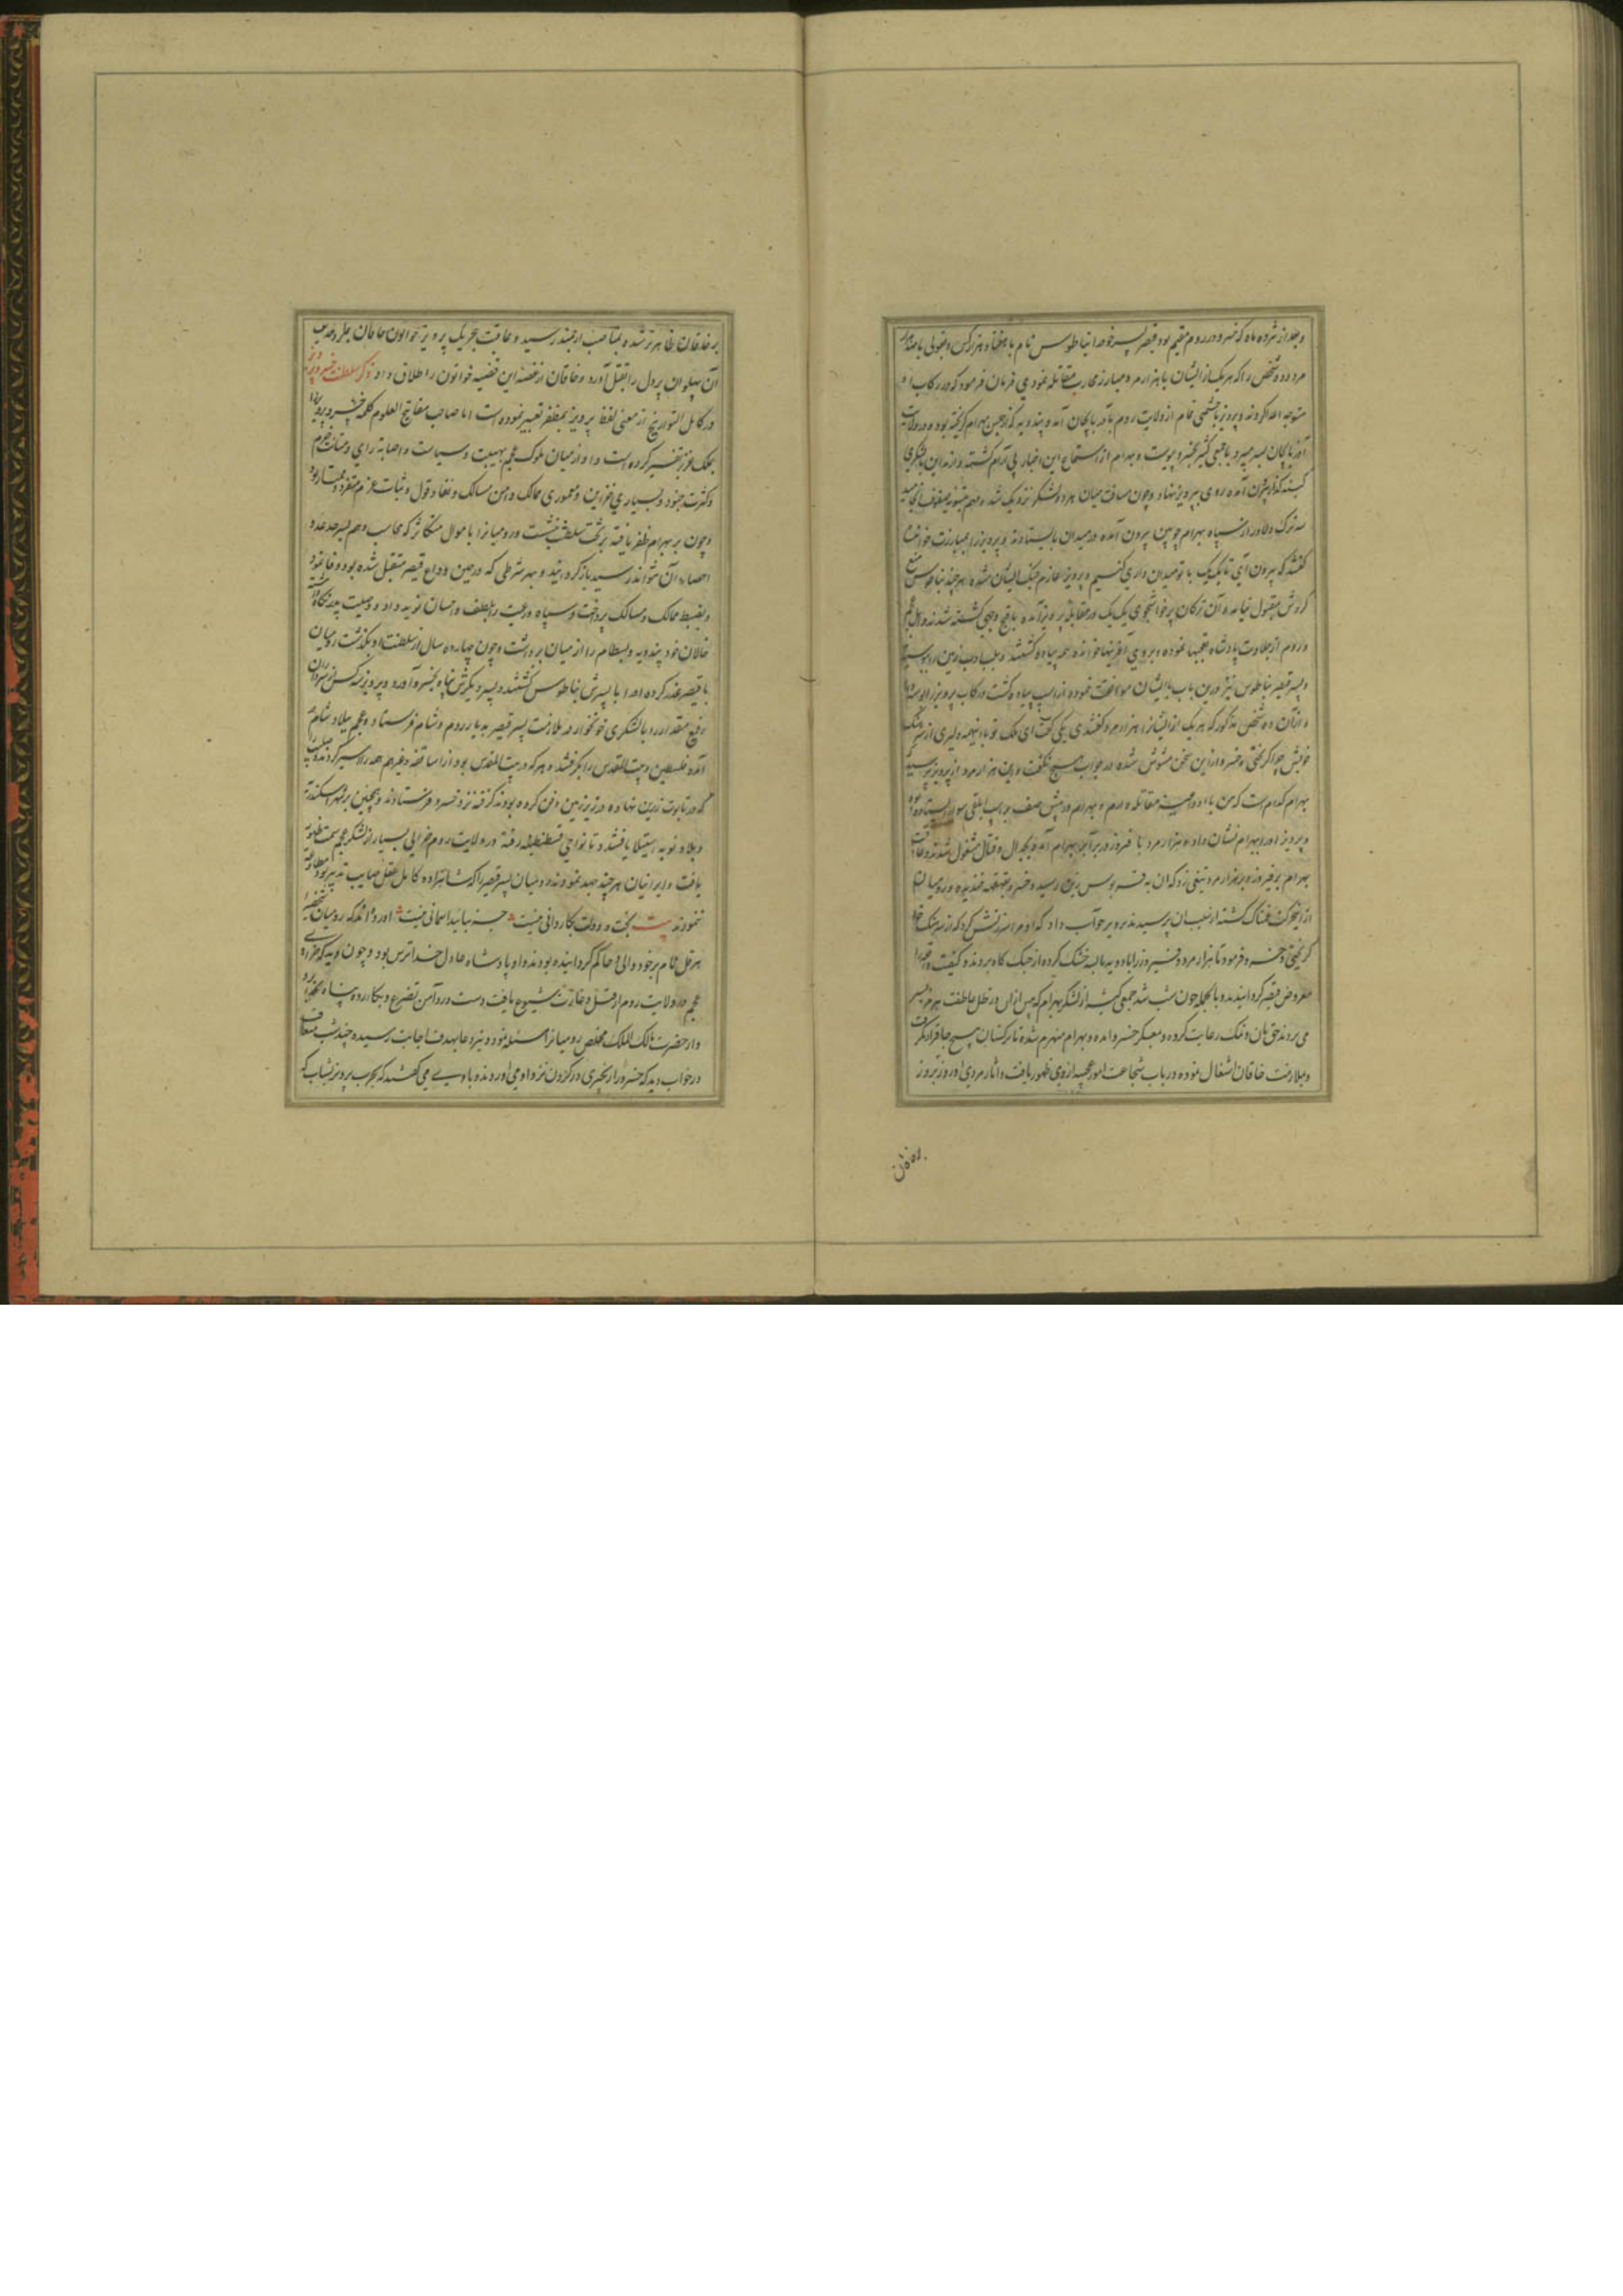 وبعد از هژده ماه که خسرو در روم مقیم بود قیصر پسر خود را نیاطوس نام با هفتاد هزار کس وبقولی با صد هزار
مرد وده شخص را که هر یک از ایشان با هزار مرد مبارز محاربه مقاتله نمودی فرمان فرمود که در رکاب او
متوجه اعدا کردند وپرویز با حشمی تمام از ولایت روم بآذربایجان آمد وبندویه که از حبس بهرام کریخته بود ودر ولایت
آذربایجان بسر میبرد با جمعی کثیر بخسرو پیوست وبهرام از استماع این اخبار بی آرام کشته واز مداین با لشکری
آمده روی بپرویز نهاد وچون مسافت میان هر دو لشکر نزدیک شد ومهم بتسویه صفوف انجامید
سه ترک دلاور از سپاه بهرام چوبین بیرون آمده در میدان بایستادند وپرویز را بمبارزت خواندند
کفتند که بیرون آی تا یک یک با تو میدان داری کنیم وپرویز عازم جنک ایشان شده هر چند نیاطوس منع
کردش مقبول نیامد وآن ترکان پرخاشجوی یک یک در مقابله پرویز آمده باقبح وجهی کشته شدند واهل عجم
وروم از جلادت پادشاه تعجبها نموده وبر وی آفرینها خوانده همه پیاده کشتند وبلب ادب زمین را بوسیدند
وپسر قیصر نیاطوس نیز درین باب با ایشان موافقت نموده از اسپ پیاده کشت ورکاب پرویز را بوسه داد
واز آن ده شخص مذکور که هر یک از ایشان را هزار مرد کفتندی یکی کفت ای ملک تو با اینهمه دلیری از سرهنک
خویش چرا کریختی وخسرو از این سخن مشوش شده در جواب هیچ نکفت واین هزار مرد از پرویز پرسید که
بهرام کدام است که من با او داعیه مقاتله دارم وبهرام در پیش صف بر اسب ابلقی سوار ایستاده بود
وپرویز او را ببهرام نشان داد وهزار مرد با فیروز در برابر بهرام آمده بجدال وقتال مشغول شدند وعاقبت
بهرام بر فیروز وبر هزار مرد تیغی زد که آن به قربوس زین رسید وخسرو بقهقهه خندید ورومیان
از این حرکت غمناک کشته از سبب آن پرسیدند پرویز جواب داد که او مرا سرزنش کرد که از سرهنک خود
کریختی وخسرو فرمود تا هزار مرد را خشک کرده از جنک کاه بردند وکیفیت واقعه را
معروض قیصر کردانیدند وبالجمله چون شب شد جمعی کثیر از لشکر بهرام که پیش از آن در ظل عاطفت هرمز بسر
می بردند حق نان ونمک رعایت کرده بمعسکر خسرو آمدند وبهرام منهزم شده تا ترکستان هیچ جا قرار نکرفت
وبملازمت خاقان اشتغال نموده در باب شجاعت امور عجیبه از وی ظهور یافت وآثار مردی او روز بروز
بر خاقان
بر خاقان ظاهرتر شده بمناصب ارجمند رسید وعاقبت بتحریک پرویز خواتون خاقان
آن پهلوان پردل را بقتل آورد وخاقان از غصه این قضیه خواتون را طلاق داد ذکر سلطنت خسرو پرویز
در کامل التواریخ از معنی لفظ پرویز بمظفر تعبیر نموده است اما صاحب مفاتیح العلوم کلمه خسرو پرویز را
بملک عزیز تفسیر کرده است واو از میان ملوک عجم بهیبت وسیاست واصابه رای ومتانت حزم
وکثرت جنود وبسیاری خزاین ومعموری ممالک وامن مسالک ونفاذ قول وثبات عزم متفرد وممتاز بود
وچون بر بهرام ظفر یافته بر تخت سلطنت نشست رومیانرا با موال متکاثر که محاسب وهم بسرحد عد و
احصاء آن نتواند رسید باز کردانید وبهر شرطی که در حین وداع قیصر متقبل شده بود وفا نمود
وبضبط ممالک ومسالک پرداخت وسپاه ورعیت را بلطف واحسان نوید داد ووصیت پدر نکاه داشته
خالان خود بندویه وبسطام را از میان برداشت وچون چهارده سال از سلطنت او بکذشت رومیان
با قیصر غدر کرده او را با پسرش نیاطوس کشتند وپسر دیکرش پناه بخسرو آورد وپرویز سه کس از سرداران
رفیع مقدار را با لشکری خونخوار در ملازمت پسر قیصر بدیار روم وشام فرستاد وعجم ببلاد شام
آمده فلسطین وبیت المقدس را بکرفتند وهر که در بیت المقدس بود از اساقفه وغیرهم همه را اسیر کردند وصلیب را
که در تابوت زرین نهاده در زیر زمین دفن کرده بودند کرفته نزد خسرو فرستادند وهمچنین بر شهر اسکندریه
وبلاد نوبه استیلا یافتند وتا نواحی قسطنطنیه رفته در ولایت روم خرابی بسیار از لشکر عجم سمت ظهور
یافت وایرانیان هر چند جهد نمودند رومیان پسر قیصر را که شاهزاده کامل عقل صایب تدبیر بود مطاوعت
ننمودند بیت بخت ودولت بکاردانی نیست جز بتایید اسمانی نیست آورده اند که رومیان شخصی
هرقل نام بر خود والی وحاکم کردانیده بودند واو پادشاه عادل خداترس بود وچون او دید که خرابی
عجم در ولایت روم از قتل وغارت شیوع یافت دست در دامن تضرع وبکا زده پناه بخدا برد
واز حضرت مالک الملک مخلص رومیانرا مسئلت نمود وتیر دعا بهدف اجابت رسیده چند شب متعاقب
در خواب دید که خسرو را زنجیری در کردن نزد او می اوردند وبا وی می کفتند که بحرب پرویز بشتاب که